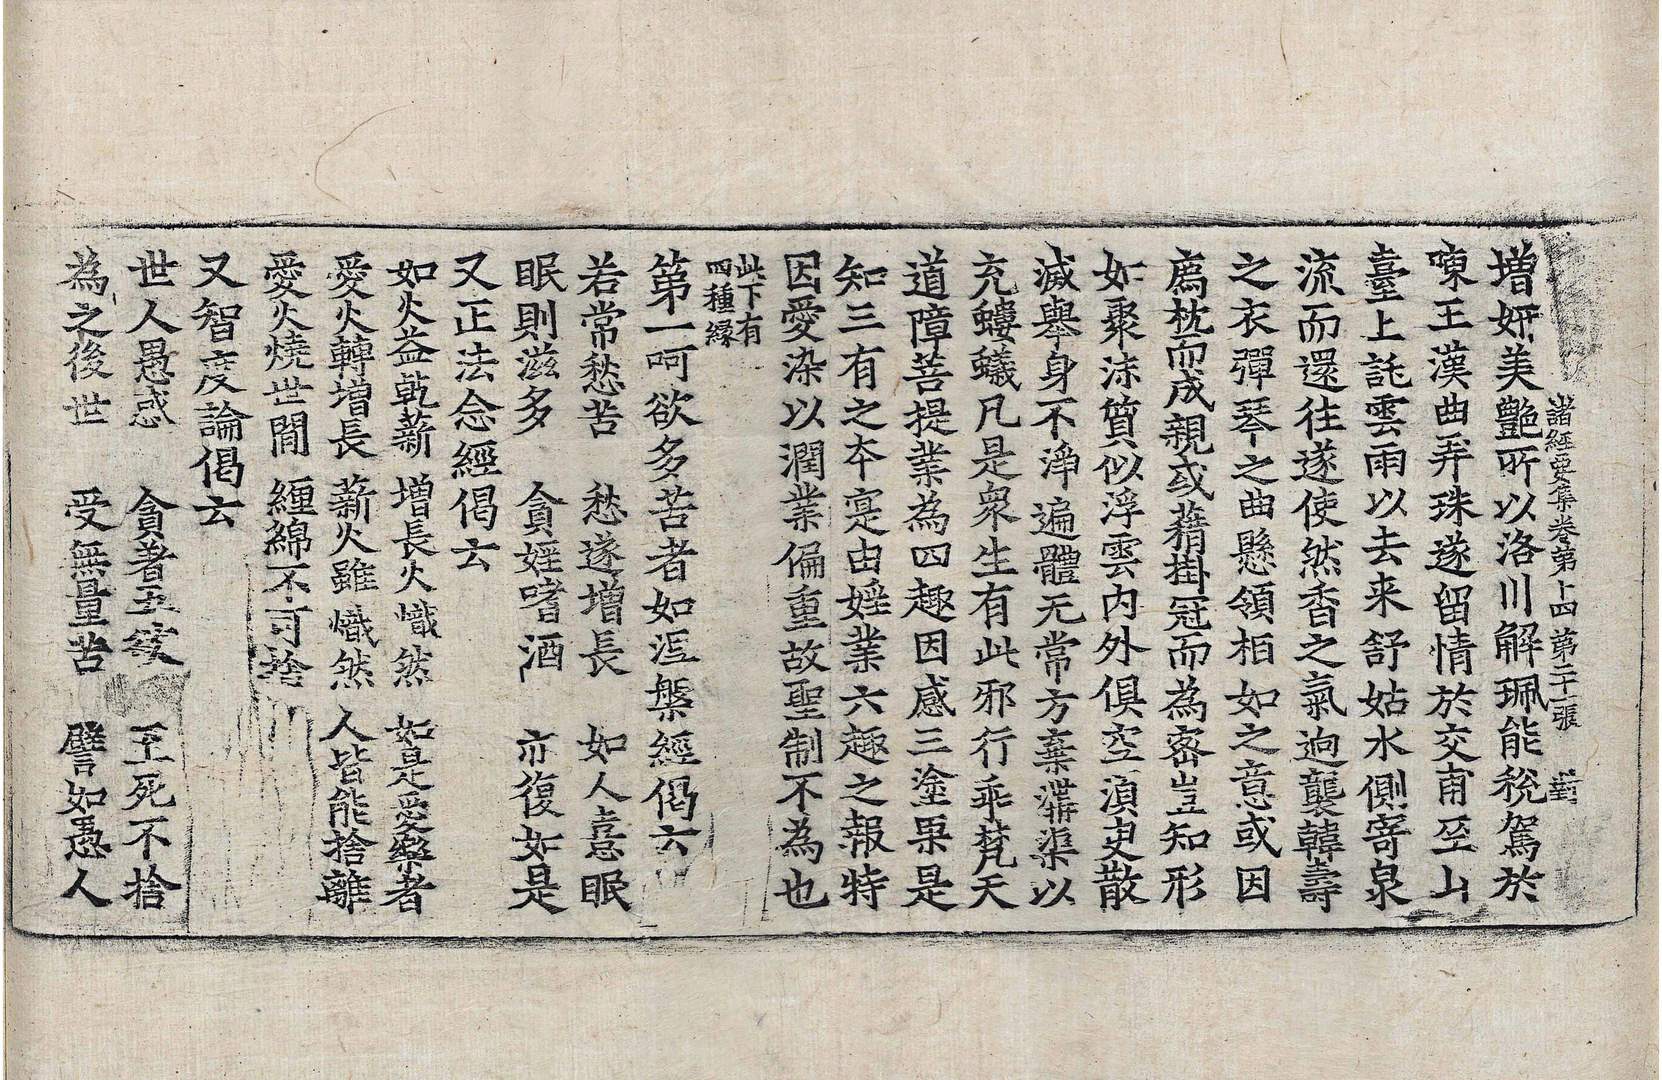 諸經要集卷第十四 第二十一張 對
增妍美艷所以洛川解珮能稅駕於
陳王漢曲弄珠遂留情於交甫巫山
臺上託雲雨以去来舒姑水側寄泉
流而還往遂使然香之氣迥襲韓壽
之衣彈琴之曲懸領相如之意或因
薦枕而成親或藉掛冠而為密豈知形
如聚沫質似浮雲内外俱空湏臾散
滅舉身不淨遍體无常方棄溝渠以
充螻蟻凡是衆生有此邪行乖梵天
道障菩提業為四趣因感三塗果是
知三有之本寔由婬業六趣之報特
因愛染以潤業偏重故聖制不為也
此下有
四種緣
第一呵欲多苦者如涅槃經偈云
若常愁苦 愁遂增長 如人憙眠
眠則滋多 貪婬嗜酒 亦復如是
又正法念經偈云
如火益乾薪 增長火熾然 如是受樂者
愛火轉增長 薪火雖熾然 人皆能捨離
愛火燒世間 纏綿不可捨
又智度論偈云
世人愚惑 貪著五欲 至死不捨
為之後世 受無量苦 譬如愚人